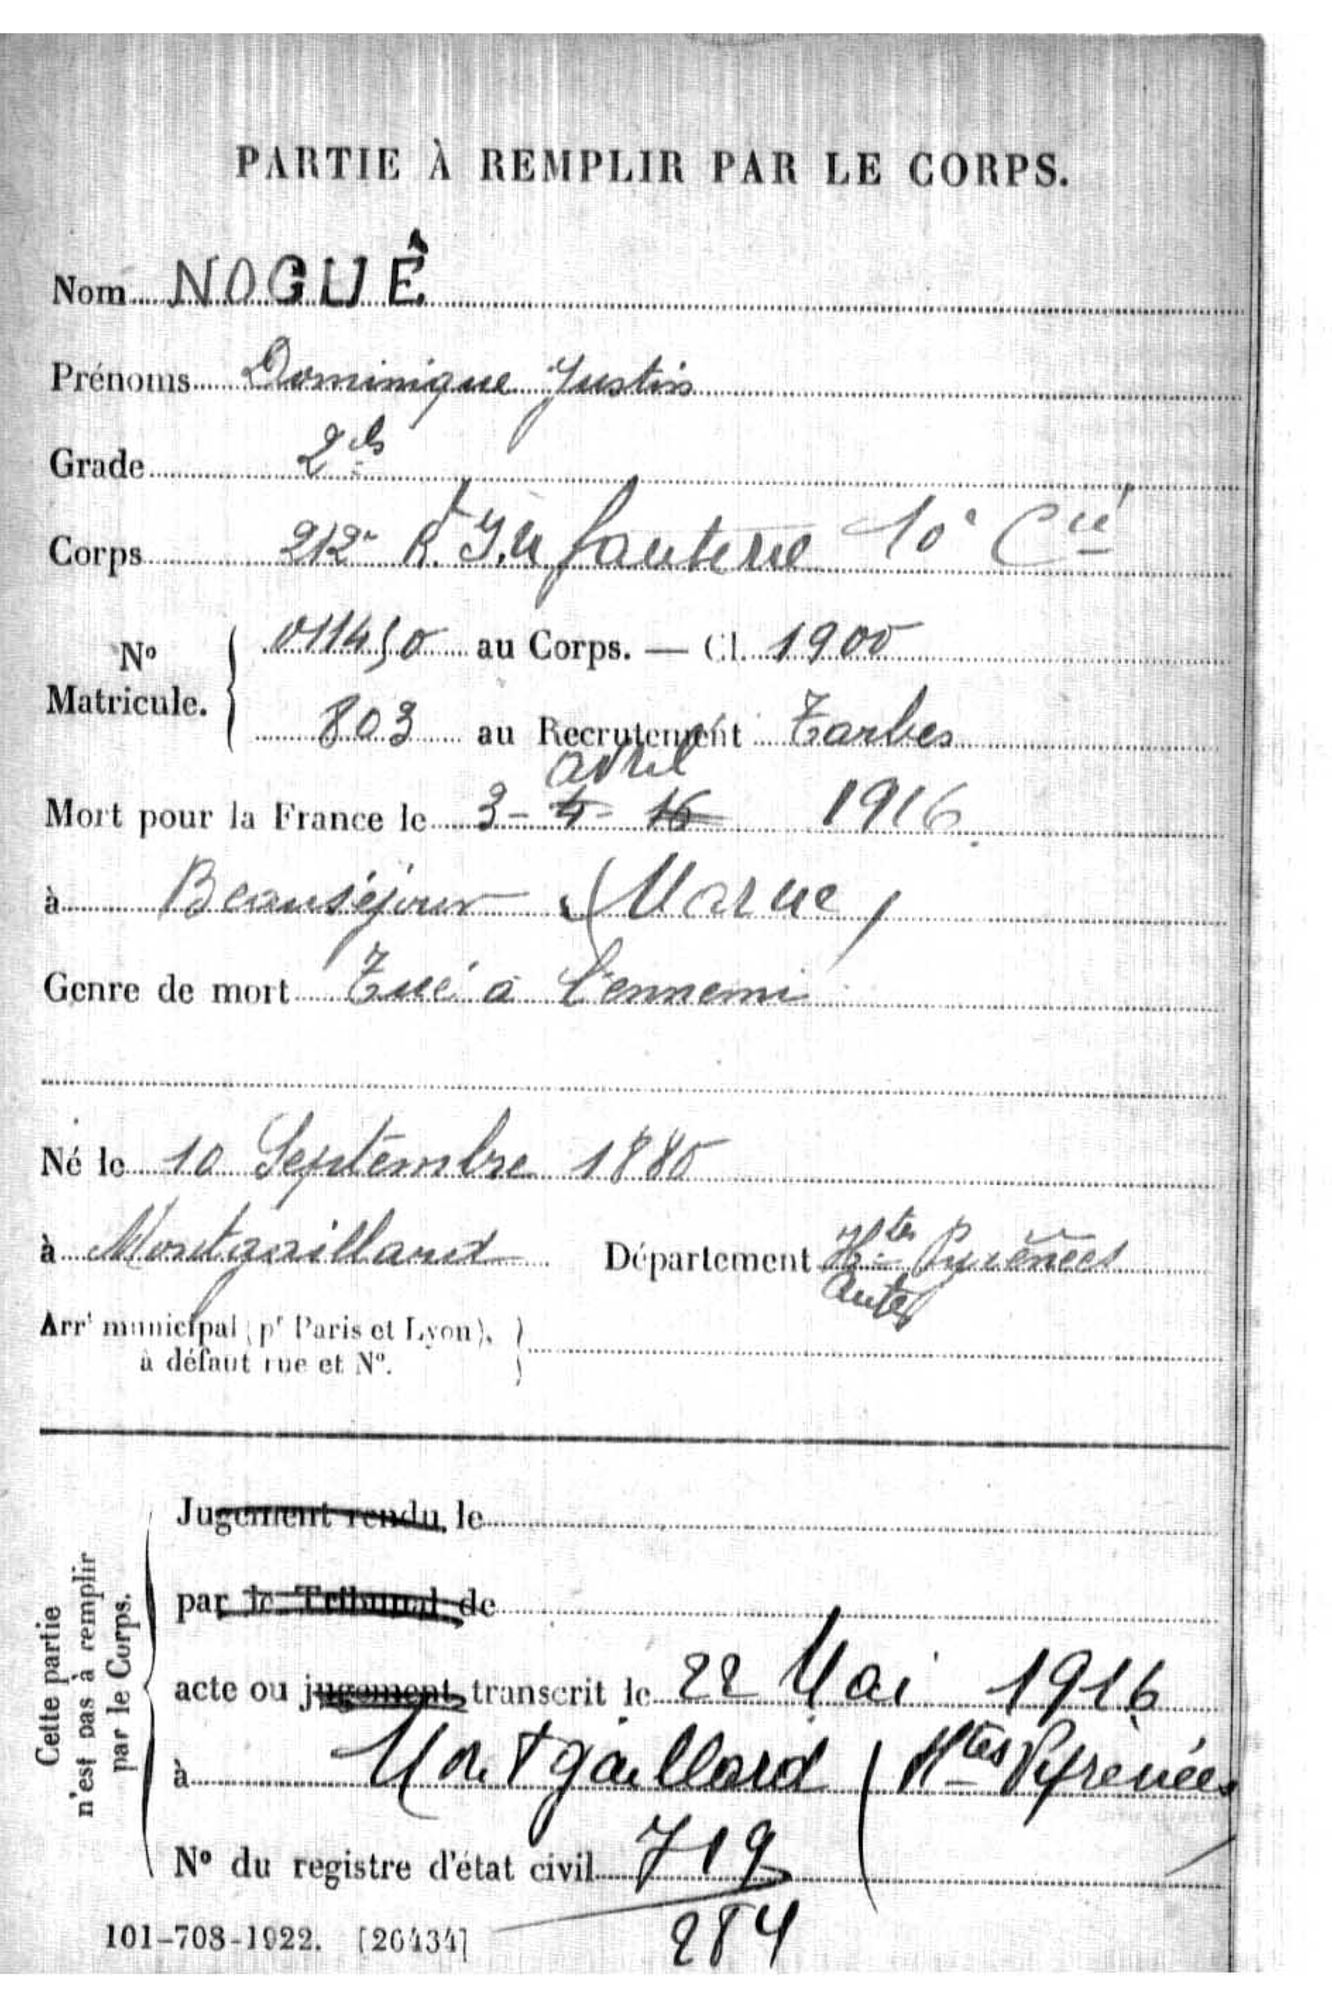 PARTIE À REMPLIR PAR LE CORPS.
Nom NOGUÈ
Prénoms Dominique Justin
Grade 2e cls
Corps 212e Rt Infanterie 10e Cie
No Matricule. 011450 au Corps. — Cl. 1900
803 au Recrutement Tarbes
avril
Mort pour la France le 3 - 4 - 16 1916.
à Beauséjour (Marne)
Genre de mort Tué à l'ennemi
Né le 10 Septembre 1880
à Montgaillard Département Htes Pyrénées
Arrt municipal (pr Paris et Lyon),
à défaut rue et No.
Jugement rendu le
par le Tribunal de
acte ou jugement transcrit le 22 Mai 1916
à Montgaillard (Htes Pyrénées)
No du registre d'état civil 719
284
Cette partie
n'est pas à remplir
par le Corps.
101-708-1922. [26434]